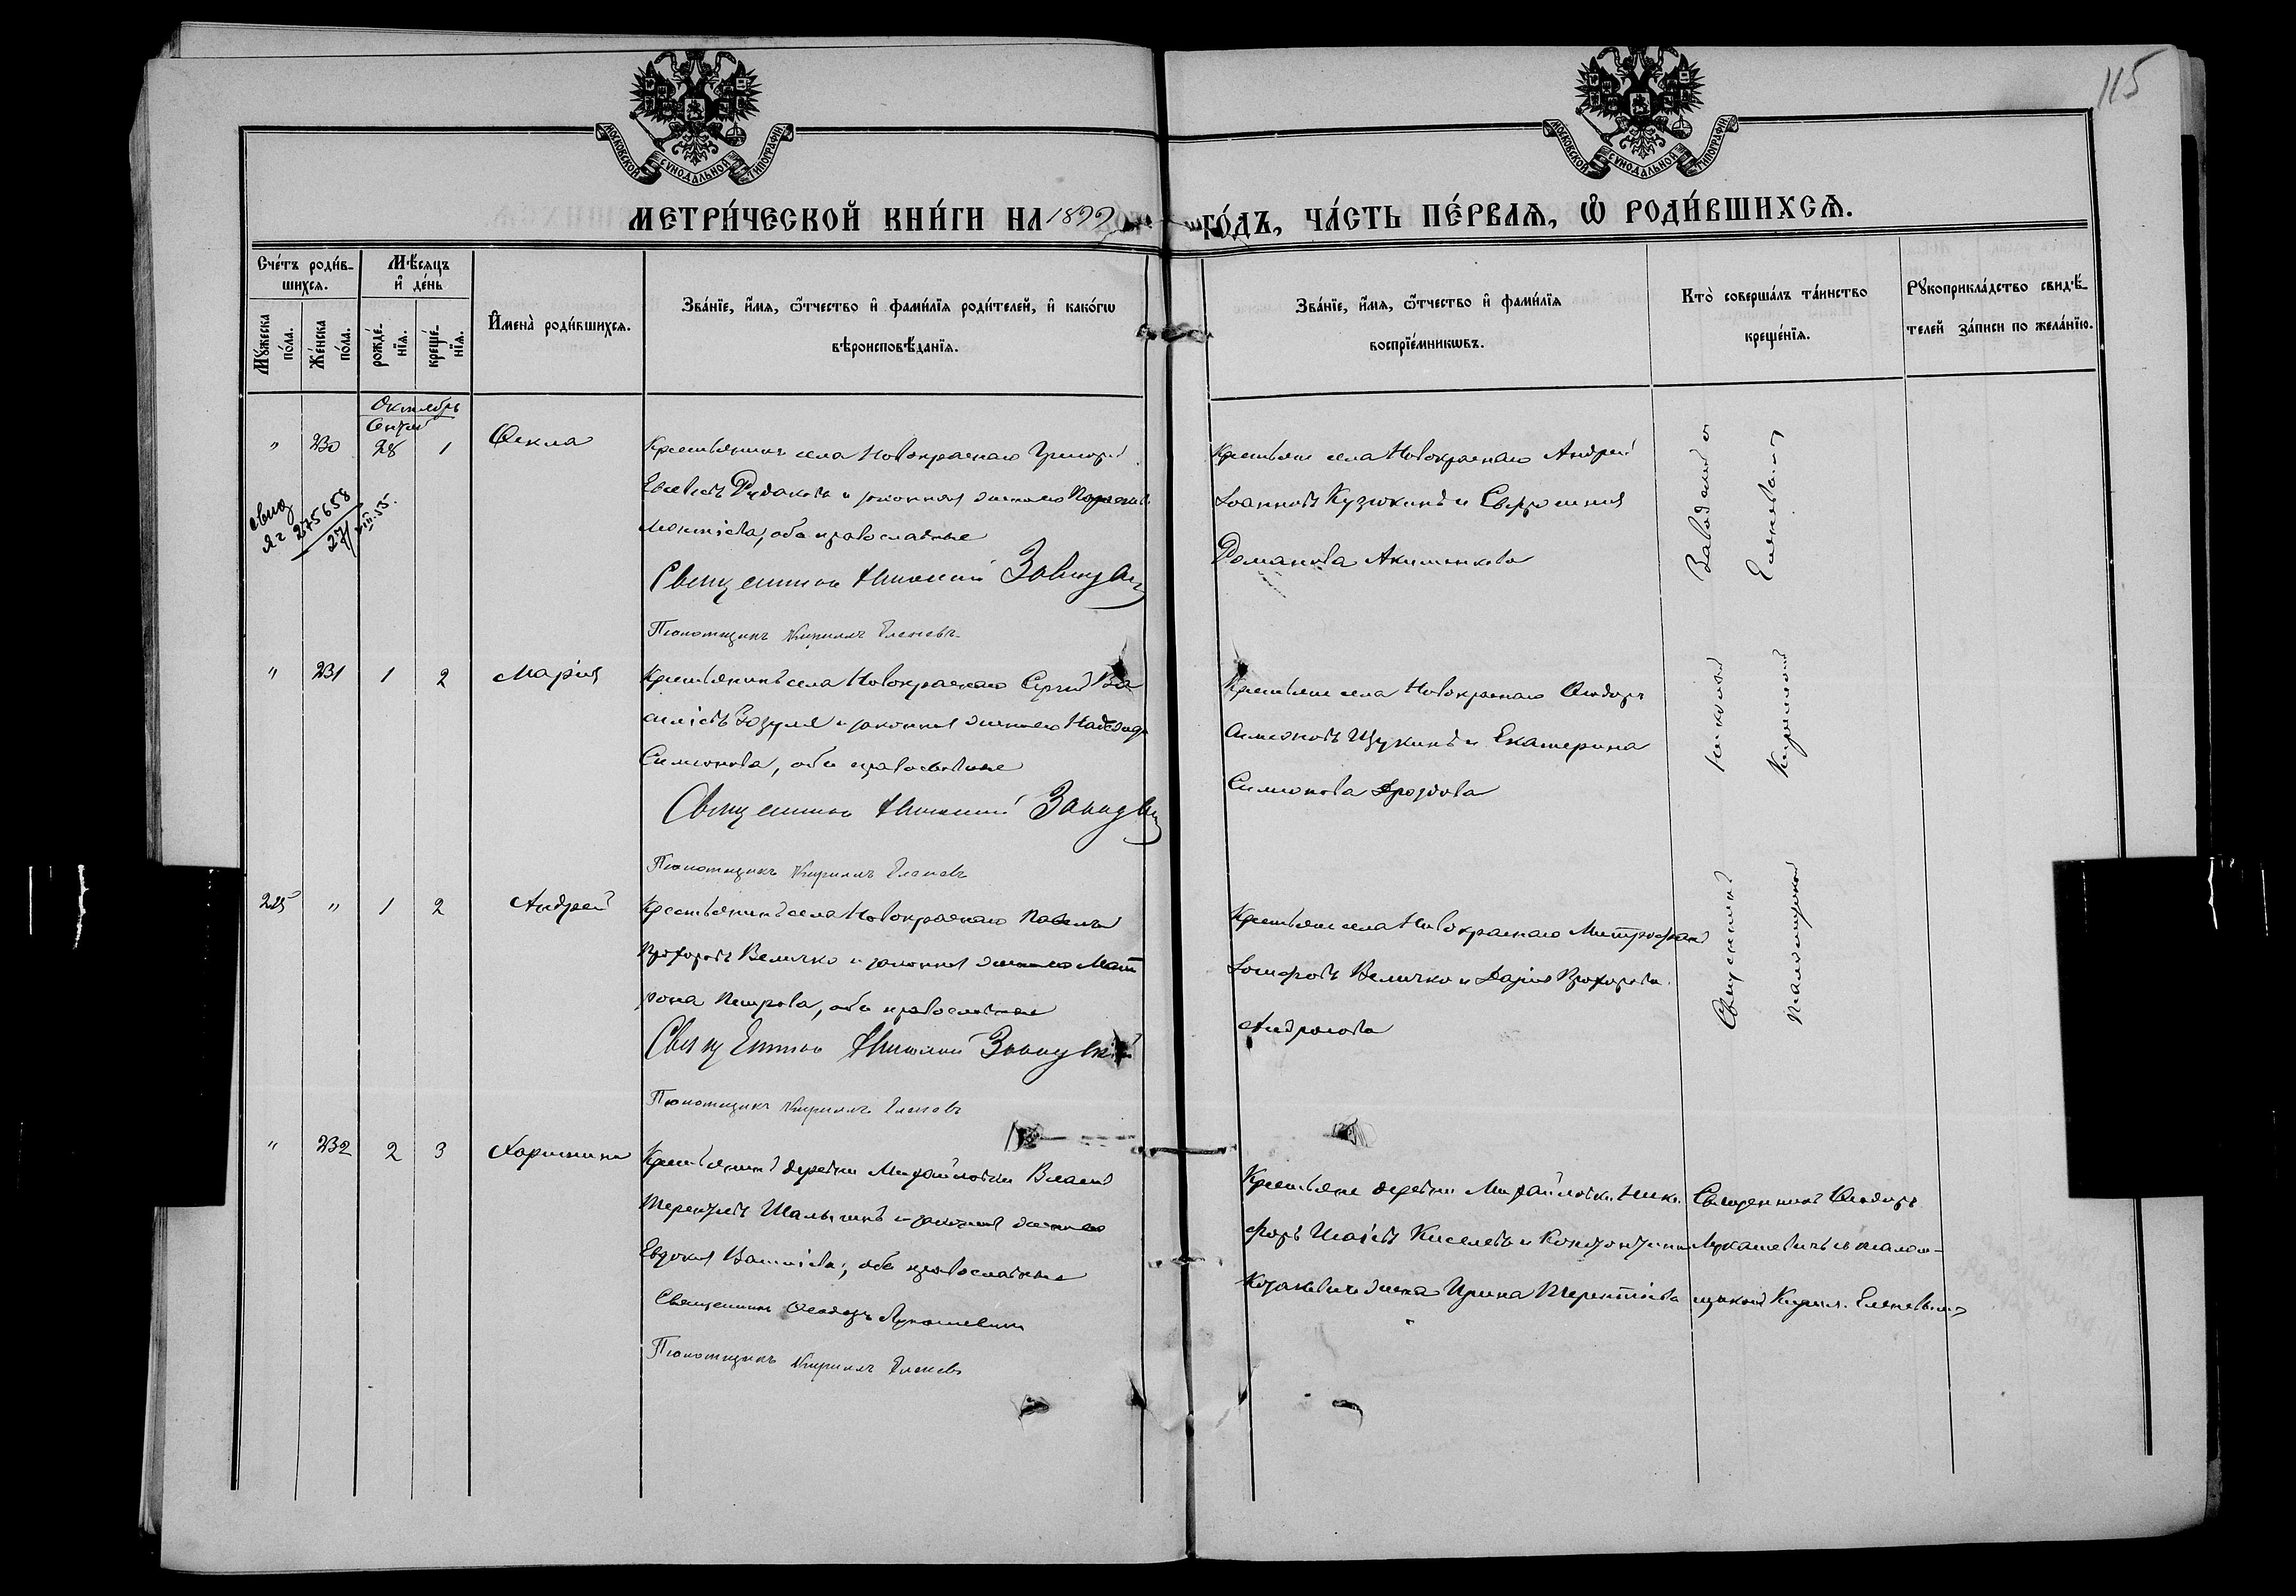 115
МОСКОВСКОЙ СѴНОДАЛЬНОЙ ТИПОГРАФІИ
МОСКОВСКОЙ СѴНОДАЛЬНОЙ ТИПОГРАФІИ
МЕТРИ́ЧЕСКОЙ КНИ́ГИ НА 1899 ГО́ДЪ, ЧА́СТЬ ПЕ́РВАѦ, Ѽ РОДИ́ВШИХСѦ.
Сче́тъ роди́в-
шихсѧ.
Мꙋ́жеска по́ла.
Же́нска по́ла.
Мѣ́сѧцъ и҆ де́нь
рожде́-нїѧ.
креще́-нїѧ.
И҆мена̀ роди́вшихсѧ.
Зва́нїе, и҆́мѧ, ѻ҆́тчество и҆ фами́лїѧ роди́телей, и҆ како́гѡ
вѣроисповѣ́данїѧ.
Зва́нїе, и҆́мѧ, ѻ҆́тчество и҆ фами́лїѧ
воспрїе́мникѡвъ.
Кто̀ соверша́лъ та́инство
креще́нїѧ.
Рꙋкоприкла́дство свидѣ́-
телей за́писи по жела́нїю.
Октябрь
" 230 28 1 Ѳекла
Крестьянинъ села Новокраснаго Григорій
Евсевіевъ Рудаковъ и законная жена его
Леонтіева, оба православные
Священникъ Николай
Псаломщикъ Кириллъ Еленевъ
Крестьяне села Новокраснаго Андрей
Іоанновъ Кузюкинъ и Евфросинія
Романова Акименкова
275658
27/VIII.55.
" 231 1 2 Марія
Крестьянинъ села Новокраснаго Сергій Ва
силіевъ Зозуля и законная жена его Надежда
Симеонова, оба православные
Священникъ Николай
Псаломщикъ Кириллъ Еленевъ
Крестьяне села Новокраснаго Ѳеодоръ
Симеоновъ Щукинъ и Екатерина
Симеонова Дроздова
225 " 1 2 Андрей
Крестьянинъ села Новокраснаго Павелъ
Прохоровъ Величко и законная жена его Мат
рона Петрова, оба православные
Священникъ Николай
Псаломщикъ Кириллъ Еленевъ
Крестьяне села Новокраснаго Митрофанъ
Іосифовъ Величко и Дарія Прохорова
Андронова
Священникъ Николай
Псаломщикомъ Кирилломъ
" 232 2 3 Харитина
Крестьянинъ деревни Михайловки Власій
Терентіевъ и законная жена его
Евдокія, оба православные
Священникъ Ѳеодоръ Лукашевичъ
Псаломщикъ Кириллъ Еленевъ
Крестьяне деревни Михайловки Ники
форъ Исаіевъ Киселевъ и Константина
жена Ирина Терентіева
Священникъ Ѳеодоръ
Лукашевичъ съ псалом-
щикомъ Кирил. Еленевымъ